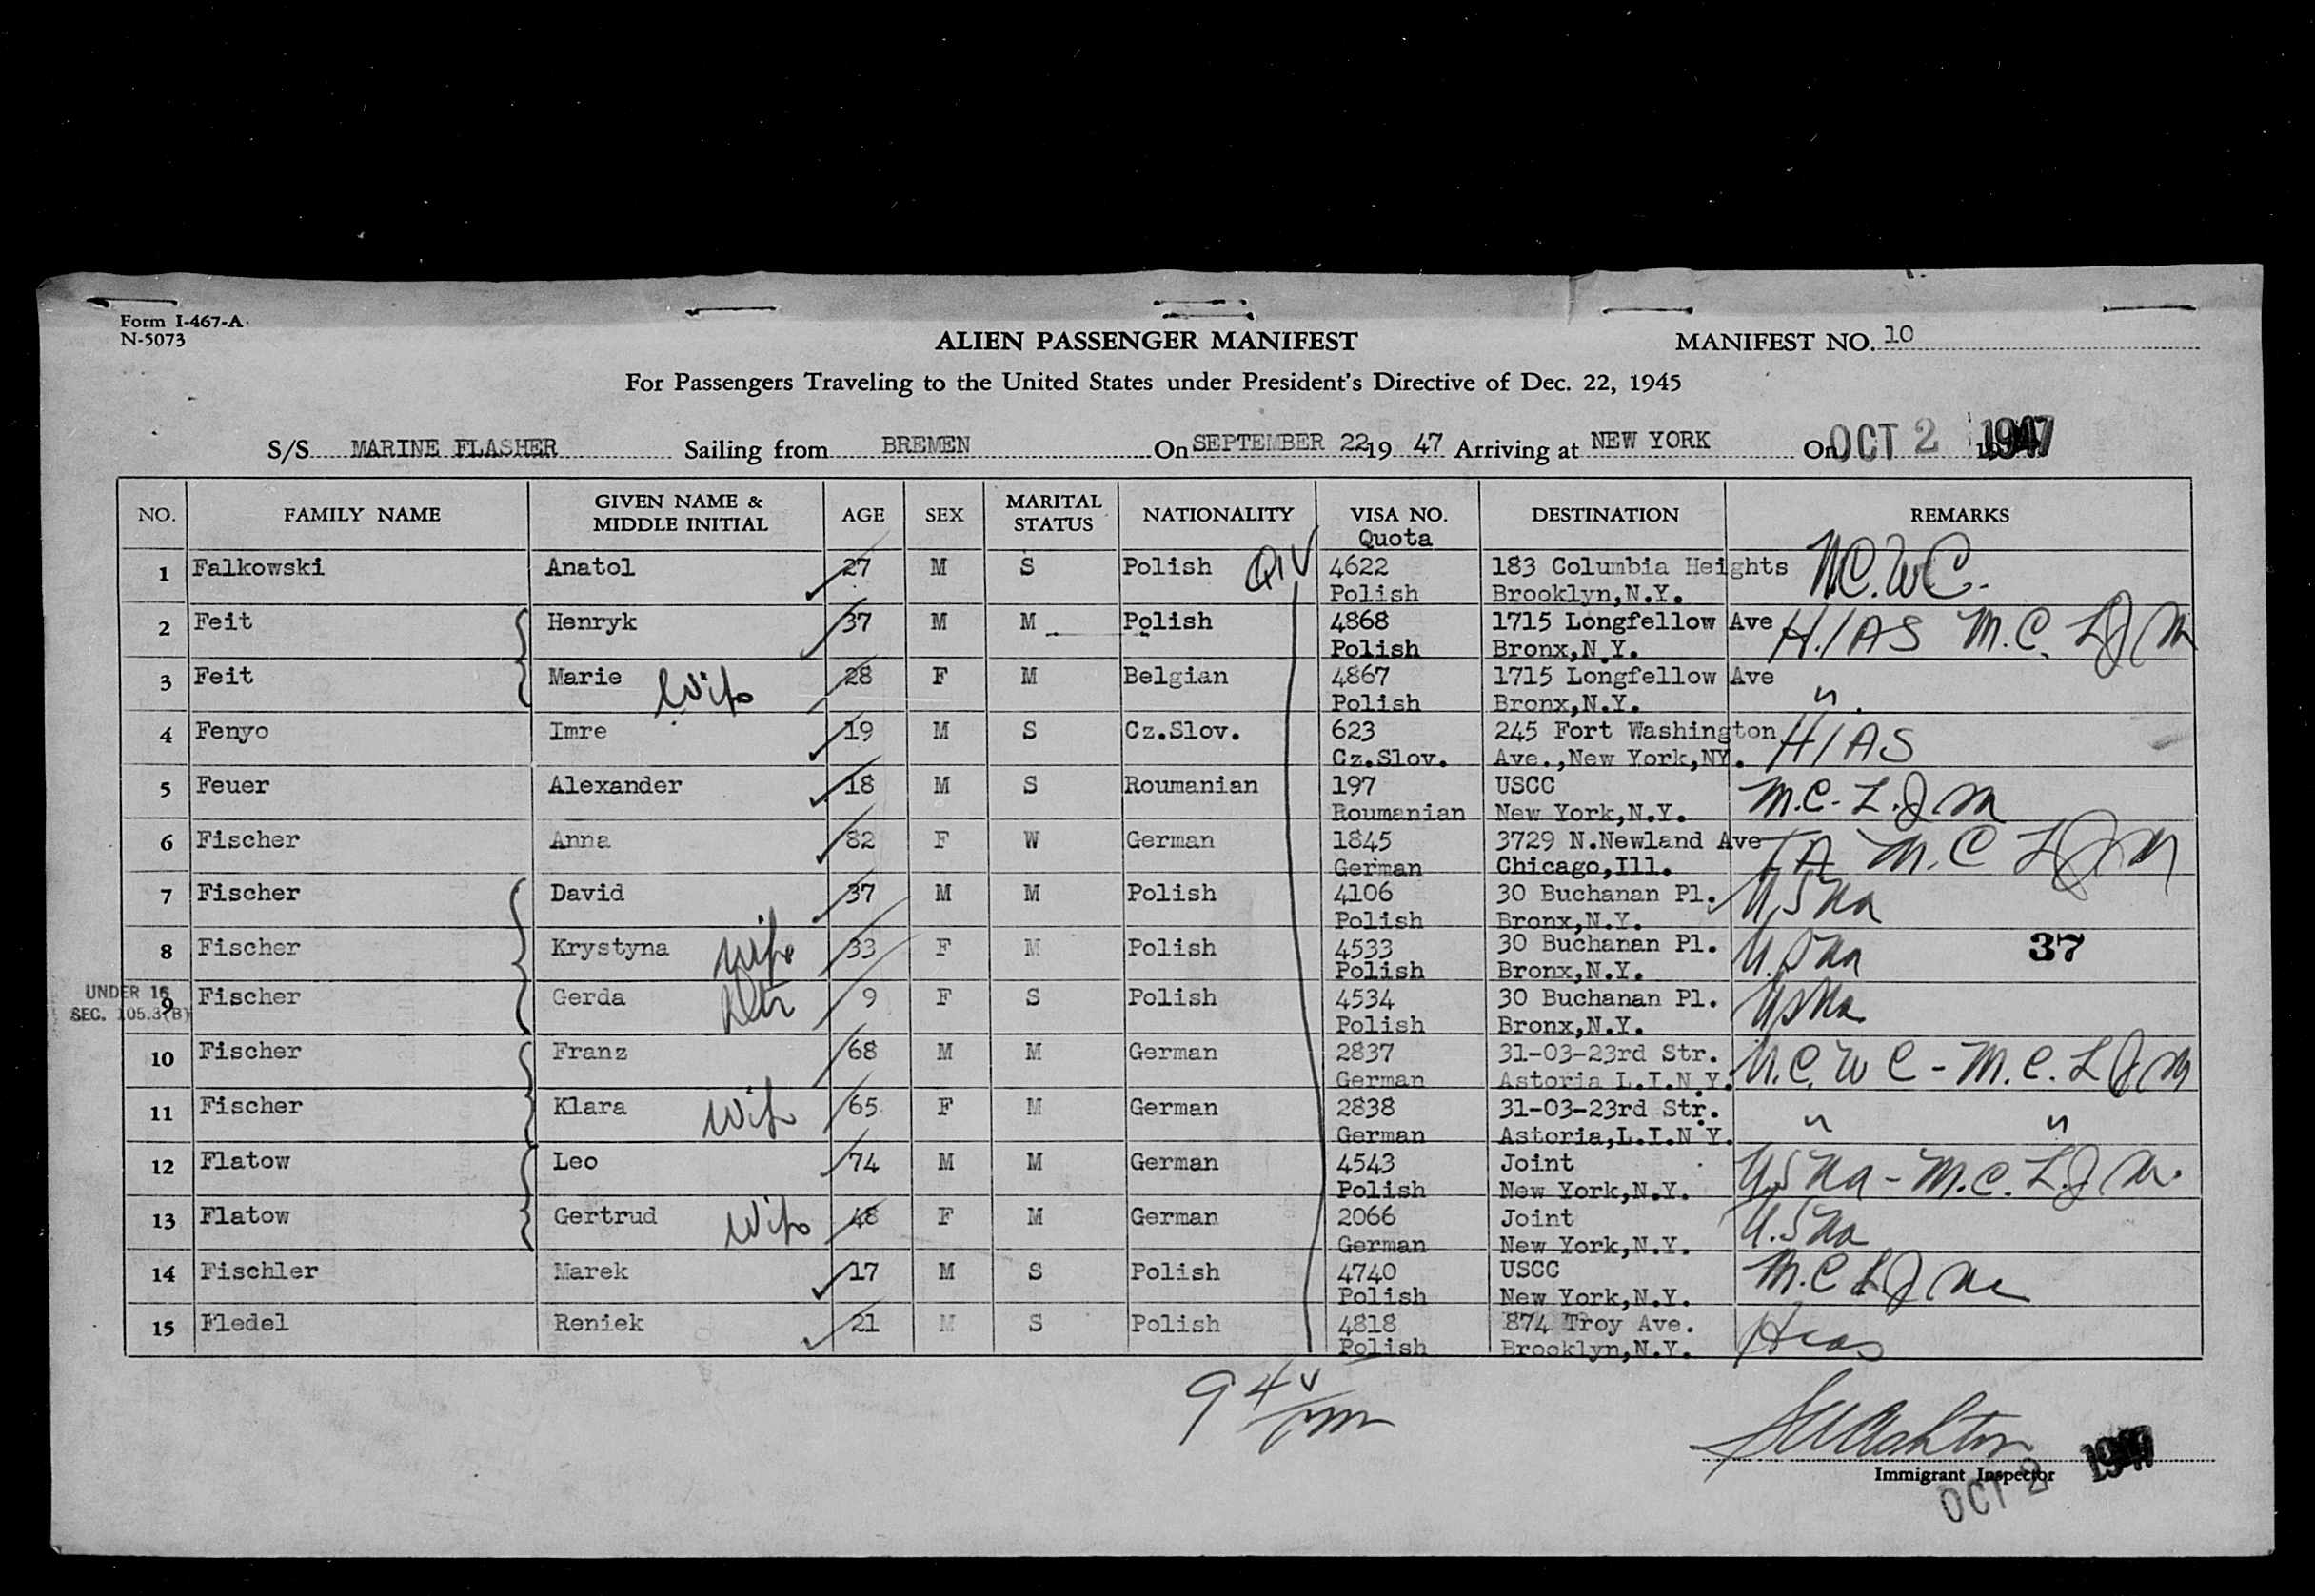 Form I-467-A
N-5073
ALIEN PASSENGER MANIFEST
MANIFEST NO. 10
For Passengers Traveling to the United States under President's Directive of Dec. 22, 1945
S/S MARINE FLASHER Sailing from BREMEN On SEPTEMBER 22 19 47 Arriving at NEW YORK On OCT 2 1947
NO. FAMILY NAME GIVEN NAME & MIDDLE INITIAL AGE SEX MARITAL STATUS NATIONALITY VISA NO. Quota DESTINATION REMARKS
1 Falkowski Anatol 27 M S Polish QIV 4622 183 Columbia Heights N.C.W.C.
Polish Brooklyn,N.Y.
2 Feit Henryk 37 M M Polish 4868 1715 Longfellow Ave HIAS M.C. LJM
Polish Bronx,N.Y.
3 Feit Marie Wife 28 F M Belgian 4867 1715 Longfellow Ave "
Polish Bronx,N.Y.
4 Fenyo Imre 19 M S Cz.Slov. 623 245 Fort Washington HIAS
Cz.Slov. Ave.,New York,NY.
5 Feuer Alexander 18 M S Roumanian 197 USCC M.C. L.J.M
Roumanian New York,N.Y.
6 Fischer Anna 82 F W German 1845 3729 N.Newland Ave TA M.C LJM
German Chicago,Ill.
7 Fischer David 37 M M Polish 4106 30 Buchanan Pl. USNA
Polish Bronx,N.Y.
8 Fischer Krystyna wife 33 F M Polish 4533 30 Buchanan Pl. USNA 37
Polish Bronx,N.Y.
UNDER 16
SEC. 105.3(B)
9 Fischer Gerda dtr 9 F S Polish 4534 30 Buchanan Pl. USNA
Polish Bronx,N.Y.
10 Fischer Franz 68 M M German 2837 31-03-23rd Str. N.C.W.C - M.C. LJM
German Astoria L.I.N.Y.
11 Fischer Klara Wife 65 F M German 2838 31-03-23rd Str. " "
German Astoria,L.I.N.Y.
12 Flatow Leo 74 M M German 4543 Joint USNA - M.C. L.J.M.
Polish New York,N.Y.
13 Flatow Gertrud Wife 48 F M German 2066 Joint USNA
German New York,N.Y.
14 Fischler Marek 17 M S Polish 4740 USCC M.C LJM
Polish New York,N.Y.
15 Fledel Reniek 21 M S Polish 4818 874 Troy Ave. Hias
Polish Brooklyn,N.Y.
94
Immigrant Inspector
OCT 2 1947